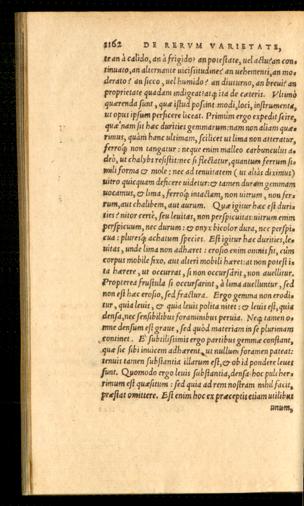 1162 DE RERVM VARIETATE,
te an à calido, an à frigido? an potestate, uel actu? an con-
tinuato, an alternante uicissitudine? an uehementi, an mo-
derato? an sicco, uel humido? an diuturno, an breui? an
proprietate quadam indigeat: atq; ita de cæteris. Vltimò
querenda sunt, quæ istud possint modi, loci, instrumenta,
ut opus ipsum perficere liceat. Primùm ergo expedit scire,
quæ nam sit hæc durities gemmarum: nam non aliam quæ-
rimus, quàm hanc ultimam, scilicet ut lima non atteratur,
ferroq́; non tangatur: neque enim malleo carbunculus a-
deò, ut chalybs resistit: nec si flectatur, quantum ferrum si-
mili forma & mole: nec ad tenuitatem (ut aliàs diximus)
uitro quicquam deficere uidetur: & tamen duram gemmam
uocamus, & lima, ferroq́; intactam, non uitrum, non fer-
rum, aut chalibem, aut aurum. Quæ igitur hæc est duri-
ties? nitor certè, seu leuitas, non perspicuitas: uitrum enim
perspicuum, nec durum: & onyx bicolor dura, nec perspi-
cua: pluresq́; achatum species. Est igitur hæc durities, le-
uitas, unde lima non adhæret: erosio enim omnis fit, cùm
corpus mobile fixo, aut alteri mobili hæret: at non potest i-
ta hærere, ut occurrat, si non occursarit, non auellitur.
Propterea frustula si occursarint, à lima auelluntur, sed
non est hæc erosio, sed fractura. Ergo gemma non erodi-
tur, quia leuis, & quia leuis polita nitet: & leuis est, quia
densa, nec sensibilibus foraminibus peruia. Neq; tamen o-
mne densum est graue, sed quòd materiam in se plurimam
continet. E subtilissimis ergo partibus gemma constant,
quæ sic sibi inuicem adhærent, ut nullum foramen pateat:
tenuis tamen substantia illarum est, & ob id pondere leues
sunt. Quomodo ergo leuis substantia, densa: hoc pulcher-
rimum est quæsitum: sed quia ad rem nostram nihil facit,
præstat omittere. Est enim hoc ex præceptis etiam utilibus
unum,